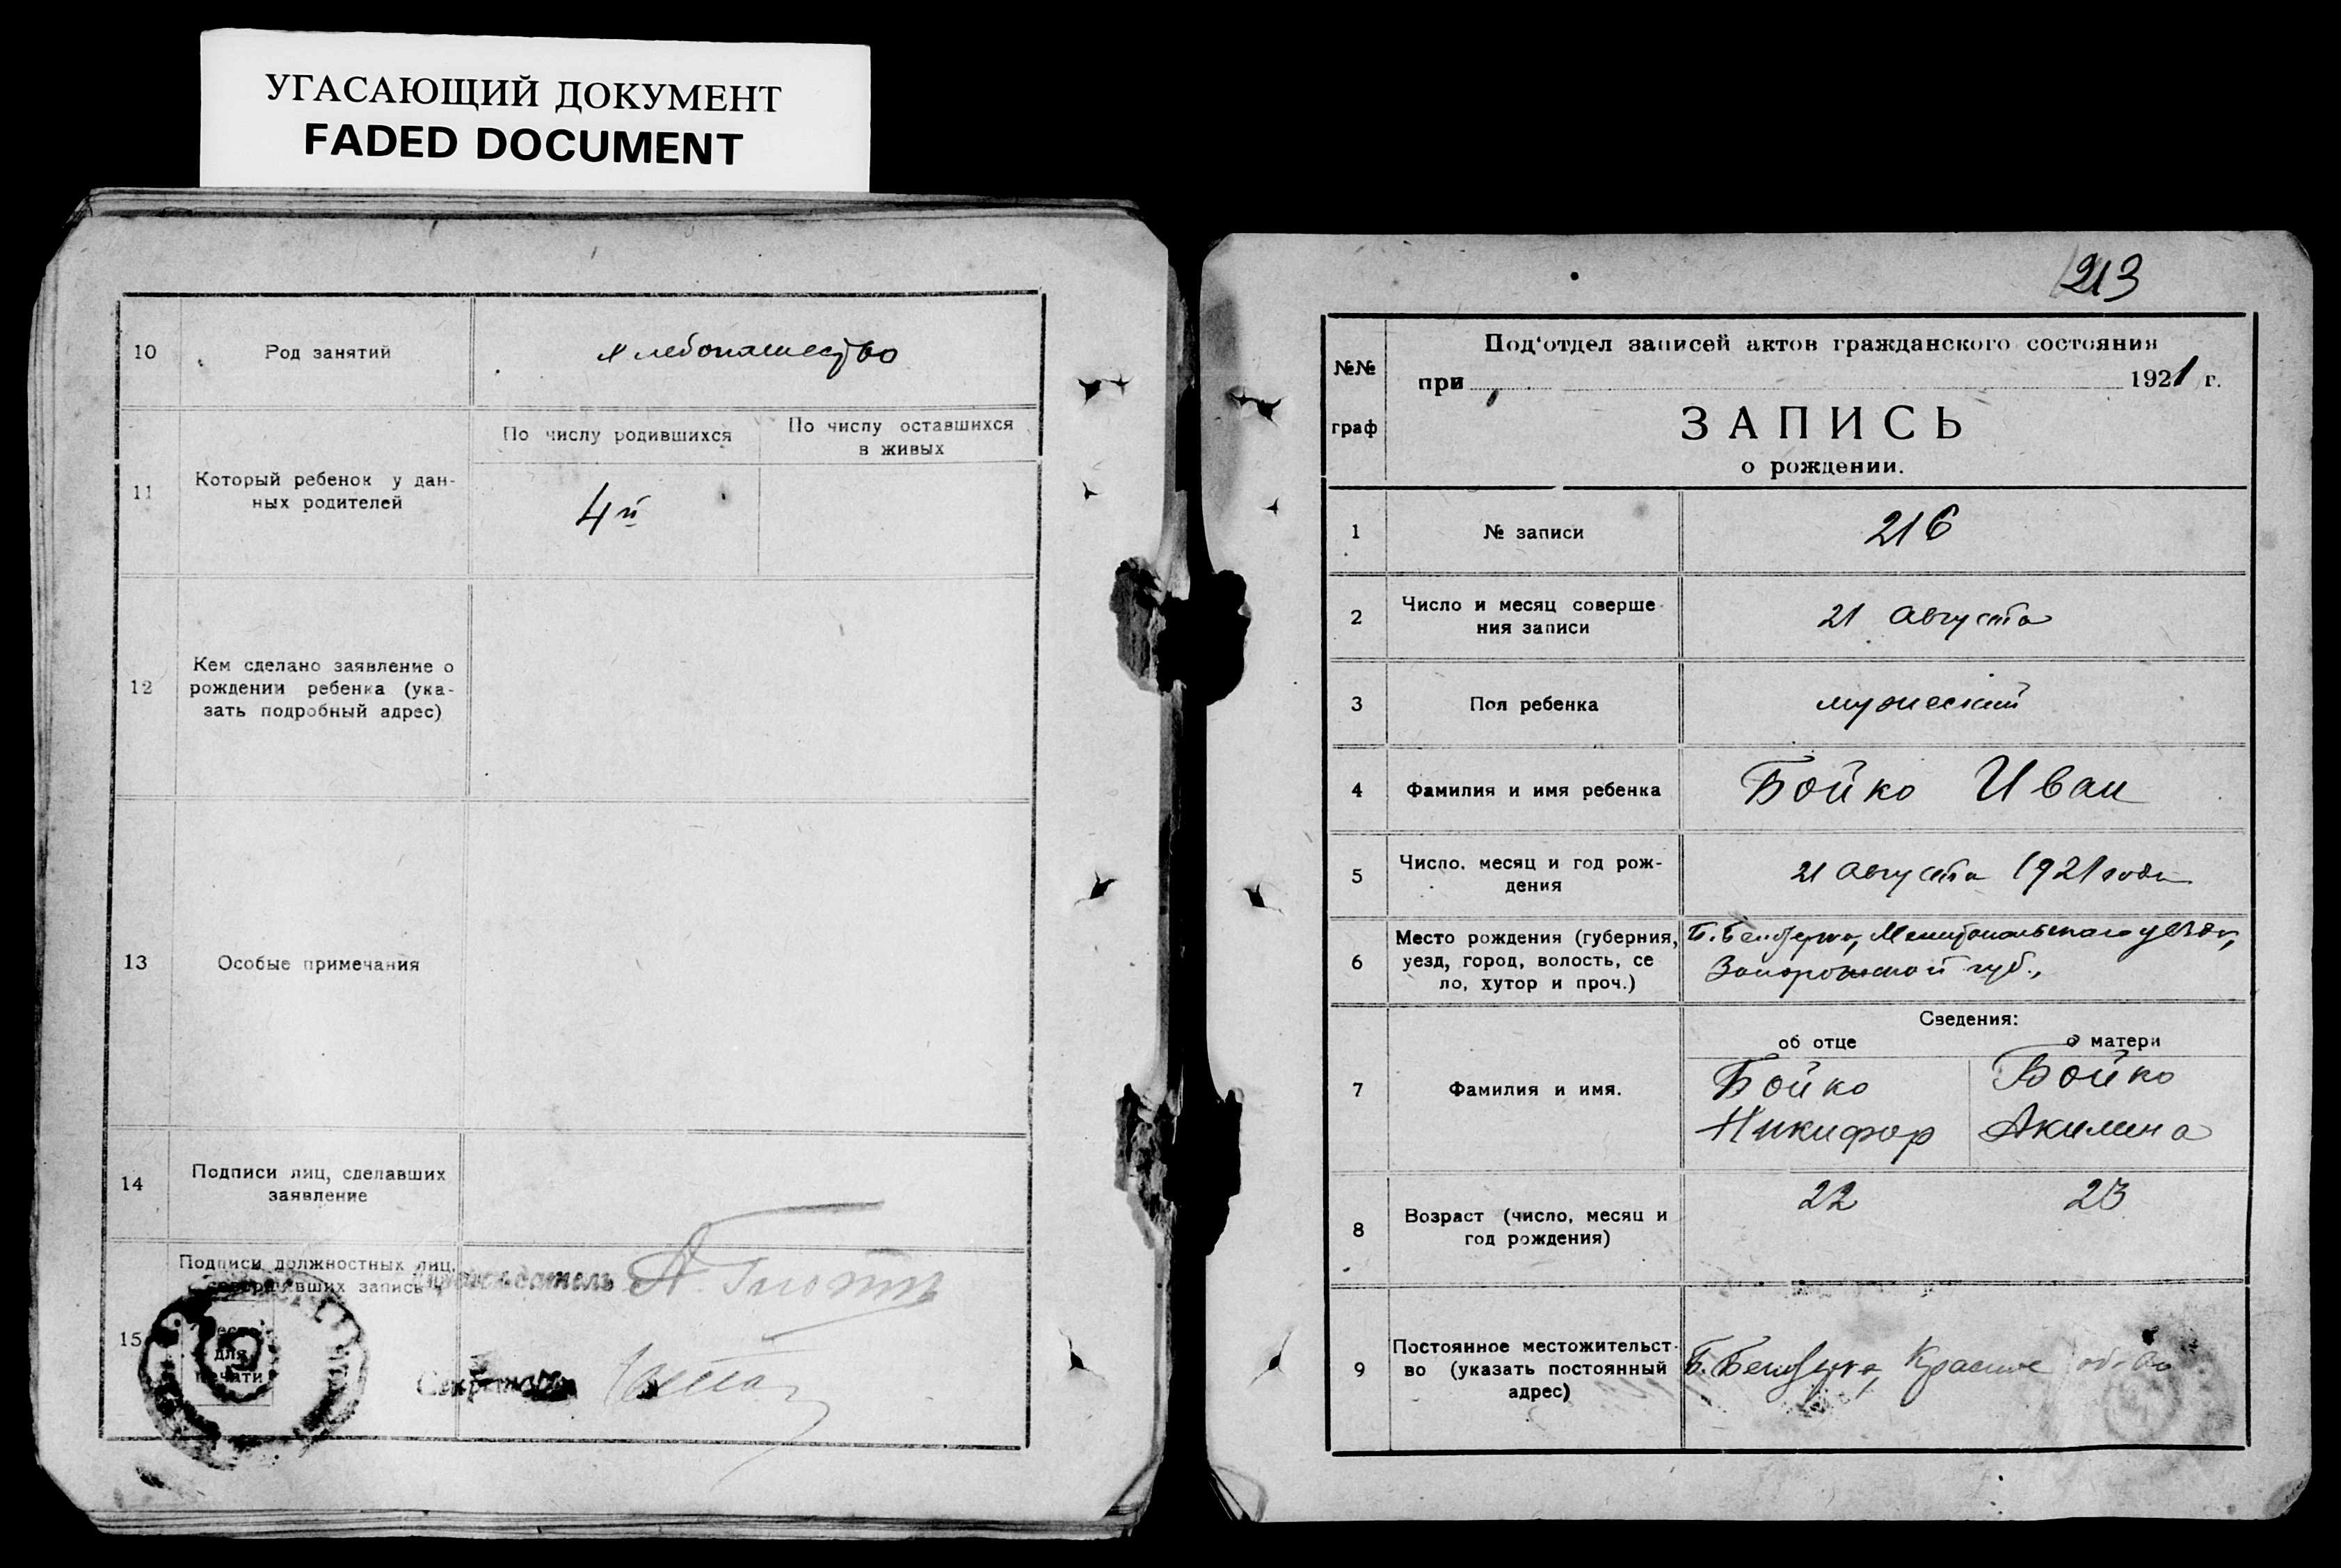 УГАСАЮЩИЙ ДОКУМЕНТ
FADED DOCUMENT
10
Род занятий
хлебопашество
11
Который ребенок у дан-
ных родителей
По числу родившихся
4й
По числу оставшихся
в живых
12
Кем сделано заявление о
рождении ребенка (ука-
зать подробный адрес)
13
Особые примечания
14
Подписи лиц, сделавших
заявление
15
Подписи должностных лиц,
совершивших запись
Место
для
печати
Председатель А.
Секретарь
213
№№
граф
Под'отдел записей актов гражданского состояния
при 1921 г.
ЗАПИСЬ
о рождении.
1
№ записи
216
2
Число и месяц соверше-
ния записи
21 Августа
3
Пол ребенка
мужеский
4
Фамилия и имя ребенка
Бойко Иван
5
Число, месяц и год рож-
дения
21 Августа 1921 года
6
Место рождения (губерния,
уезд, город, волость, се
ло, хутор и проч.)
Б. Белозерка, Мелитопольского уезда,
Запорожской губ.,
Сведения:
об отце
о матери
7
Фамилия и имя.
Бойко
Никифор
Бойко
Акилина
8
Возраст (число, месяц и
год рождения)
22
23
9
Постоянное местожительст-
во (указать постоянный
адрес)
Б. Белозерка,